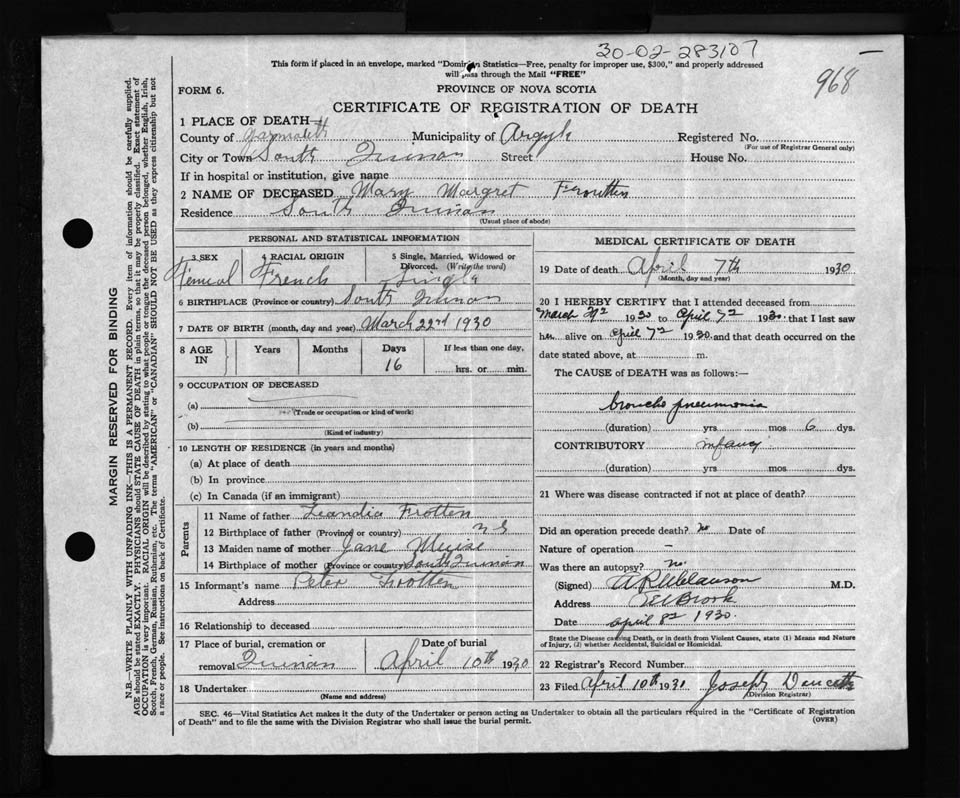 30-02-283107
968
This form if placed in an envelope, marked "Dominion Statistics—Free, penalty for improper use, $300," and properly addressed
will pass through the Mail "FREE"
FORM 6.
PROVINCE OF NOVA SCOTIA
CERTIFICATE OF REGISTRATION OF DEATH
1 PLACE OF DEATH
County of Yarmouth Municipality of Argyle Registered No.
(For use of Registrar General only)
City or Town South Quinan Street House No.
If in hospital or institution, give name
2 NAME OF DECEASED Mary Margret Frotten
Residence South Quinan
(Usual place of abode)
PERSONAL AND STATISTICAL INFORMATION
3 SEX 4 RACIAL ORIGIN 5 Single, Married, Widowed or
Divorced. (Write the word)
Femeal French Single
6 BIRTHPLACE (Province or country) South Quinan
7 DATE OF BIRTH (month, day and year) March 22nd 1930
8 AGE IN Years Months Days If less than one day,
16 hrs. or min.
9 OCCUPATION OF DECEASED
(a)
(Trade or occupation or kind of work)
(b)
(Kind of industry)
10 LENGTH OF RESIDENCE (in years and months)
(a) At place of death
(b) In province
(c) In Canada (if an immigrant)
Parents
11 Name of father Leandie Frotten
12 Birthplace of father (Province or country) N S
13 Maiden name of mother Jane Muise
14 Birthplace of mother (Province or country) South Quinan
15 Informant's name Peter Frotten
Address
16 Relationship to deceased
17 Place of burial, cremation or Date of burial
removal Quinan April 10th 1930
18 Undertaker
(Name and address)
MEDICAL CERTIFICATE OF DEATH
19 Date of death April 7th 1930
(Month, day and year)
20 I HEREBY CERTIFY that I attended deceased from
March 1930 to April 7 1930 that I last saw
her alive on April 7 1930 and that death occurred on the
date stated above, at m.
The CAUSE of DEATH was as follows:—
broncho pneumonia
(duration) yrs mos 6 dys.
CONTRIBUTORY infancy
(duration) yrs mos dys.
21 Where was disease contracted if not at place of death?
Did an operation precede death? no Date of
Nature of operation —
Was there an autopsy? no.
(Signed) M.D.
Address Brook
Date April 8 1930.
State the Disease causing Death, or in death from Violent Causes, state (1) Means and Nature
of Injury, (2) whether Accidental, Suicidal or Homicidal.
22 Registrar's Record Number
23 Filed April 10th 1930 Joseph Doucette
(Division Registrar)
SEC. 46—Vital Statistics Act makes it the duty of the Undertaker or person acting as Undertaker to obtain all the particulars required in the "Certificate of Registration
of Death" and to file the same with the Division Registrar who shall issue the burial permit.
(OVER)
MARGIN RESERVED FOR BINDING
N.B.—WRITE PLAINLY WITH UNFADING INK—THIS IS A PERMANENT RECORD. Every item of information should be carefully supplied.
AGE should be stated EXACTLY. PHYSICIANS should STATE CAUSE OF DEATH in plain terms, so that it may be properly classified. Exact statement of
OCCUPATION is very important. RACIAL ORIGIN will be described by stating to what people or tongue the deceased person belonged, whether English, Irish,
Scotch, French, German, Russian, Ruthenian, etc. The terms "AMERICAN" or "CANADIAN" SHOULD NOT BE USED as they express citizenship but not
a race or people. See instructions on back of Certificate.